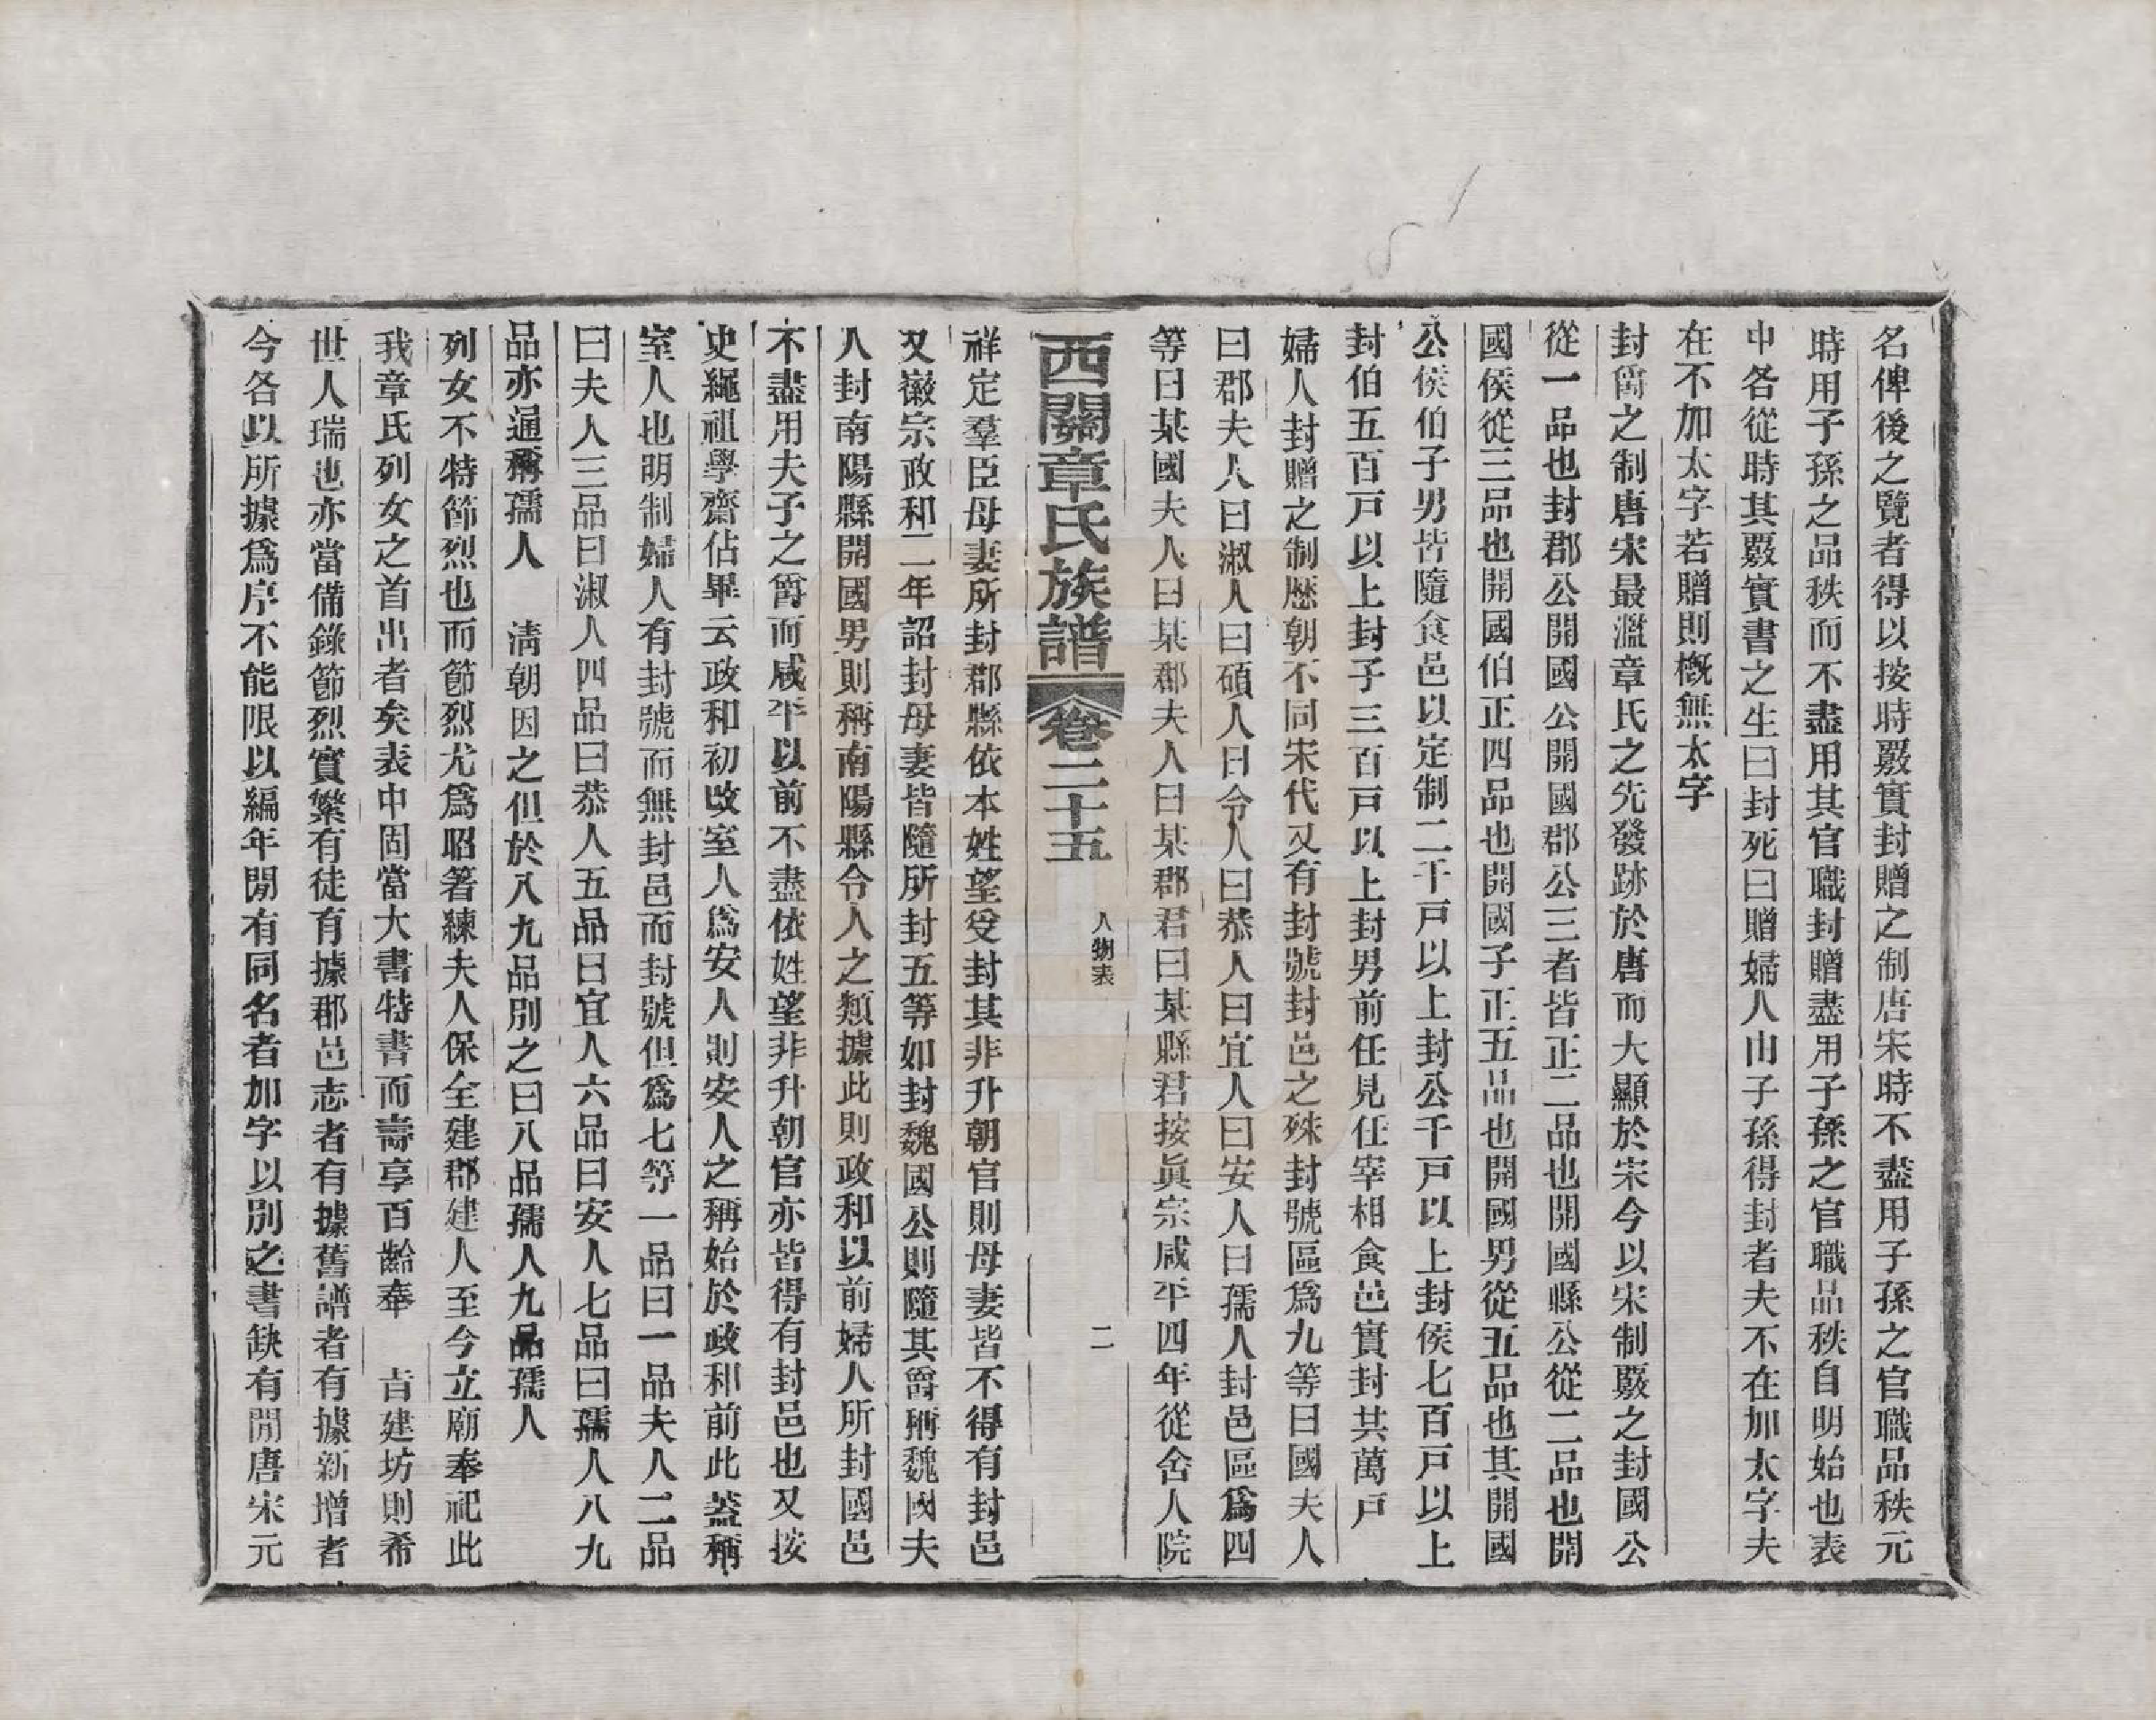 名俾後之覽者得以按時覈實封贈之制唐宋時不盡用子孫之官職品秩元
時用子孫之品秩而不盡用其官職封贈盡用子孫之官職品秩自明始也表
中各從時其覈實書之生曰封死曰贈婦人由子孫得封者夫不在加太字夫
在不加太字若贈則槪無太字
封爵之制唐宋最濫章氏之先發跡於唐而大顯於宋今以宋制覈之封國公
從一品也封郡公開國公開國郡公三者皆正二品也開國縣公從二品也開
國侯從三品也開國伯正四品也開國子正五品也開國男從五品也其開國
公侯伯子男皆隨食邑以定制二千戸以上封公千戸以上封侯七百戸以上
封伯五百戸以上封子三百戸以上封男前任見任宰相食邑實封其萬戸
婦人封贈之制歷朝不同宋代又有封號封邑之殊封號區爲九等曰國夫人
曰郡夫人曰淑人曰碩人曰令人曰恭人曰宜人曰安人曰孺人封邑區爲四
等曰某國夫人曰某郡夫人曰某郡君曰某縣君按眞宗咸平四年從舍人院
西關章氏族譜 卷二十五 人物表 二
祥定羣臣母妻所封郡縣依本姓望受封其非升朝官則母妻皆不得有封邑
又徽宗政和二年詔封母妻皆隨所封五等如封魏國公則隨其爵稱魏國夫
人封南陽縣開國男則稱南陽縣令人之類據此則政和以前婦人所封國邑
不盡用夫子之爵而咸平以前不盡依姓望非升朝官亦皆得有封邑也又按
史繩祖學齋佔畢云政和初改室人爲安人則安人之稱始於政和前此蓋稱
室人也明制婦人有封號而無封邑而封號但爲七等一品曰一品夫人二品
曰夫人三品曰淑人四品曰恭人五品曰宜人六品曰安人七品曰孺人八九
品亦通稱孺人 淸朝因之但於八九品別之曰八品孺人九品孺人
列女不特節烈也而節烈尤爲昭著練夫人保全建郡建人至今立廟奉祀此
我章氏列女之首出者矣表中固當大書特書而壽享百齡奉 旨建坊則希
世人瑞也亦當備錄節烈實繁有徒有據郡邑志者有據舊譜者有據新增者
今各以所據爲序不能限以編年閒有同名者加字以別之書缺有閒唐宋元